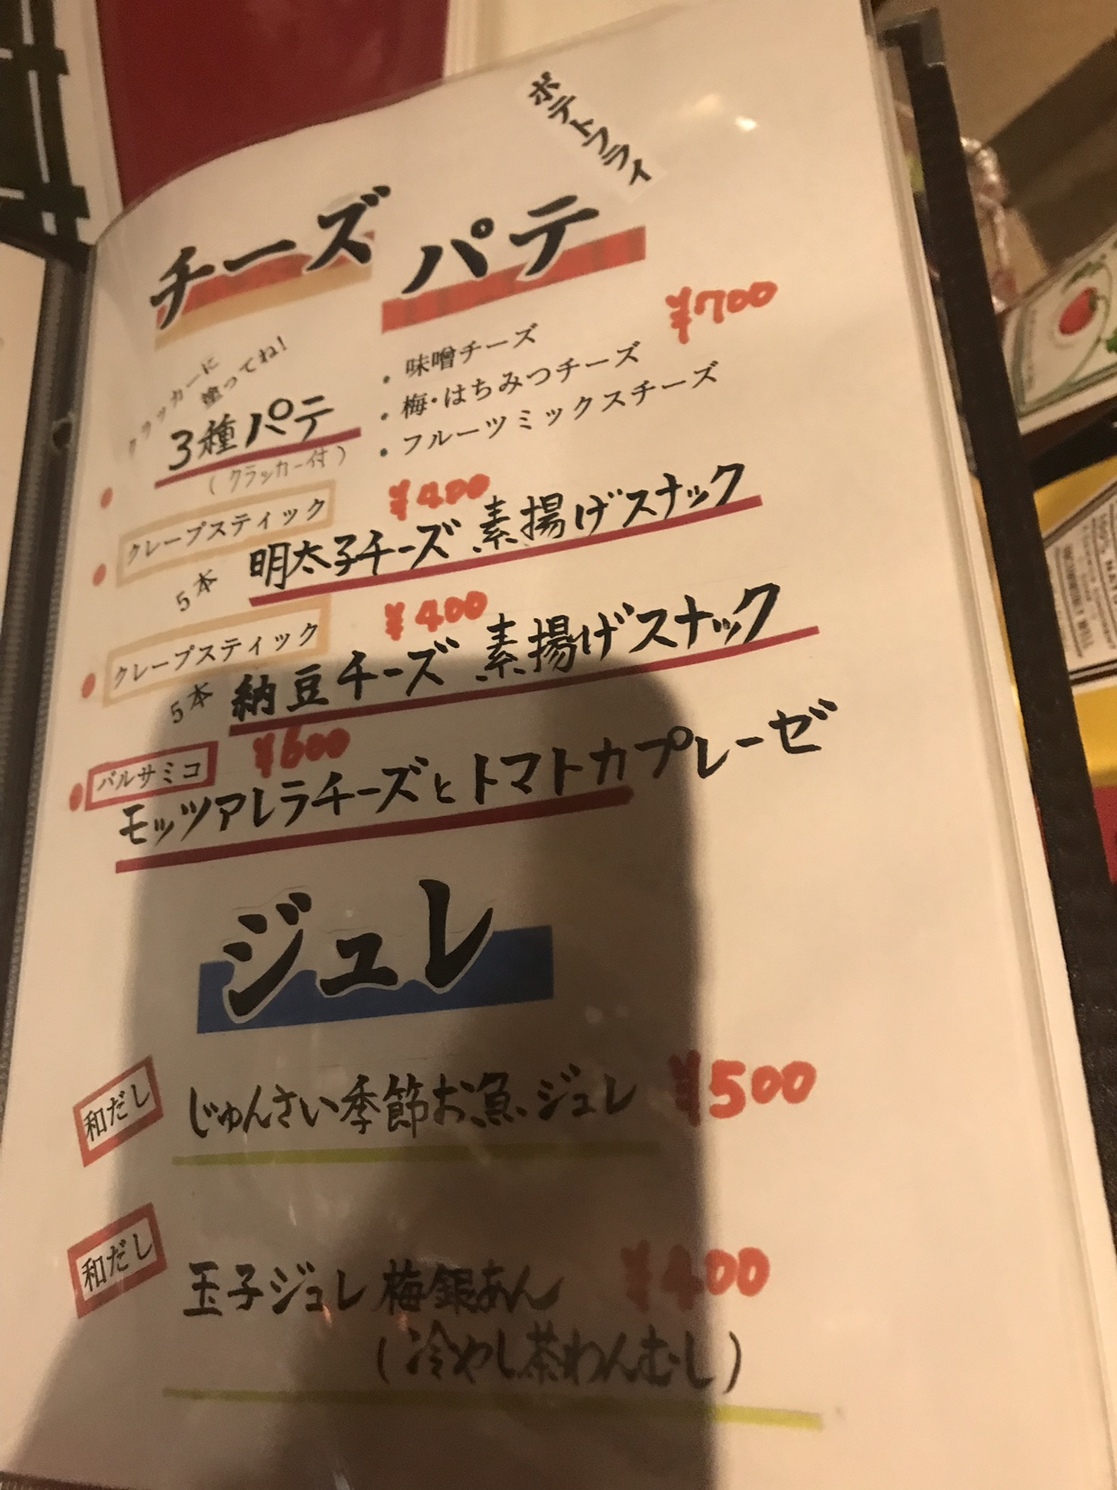 ポテトフライ
チーズ パテ
クラッカーに
塗ってね!
3種パテ
(クラッカー付)
¥700
・味噌チーズ
・梅・はちみつチーズ
・フルーツミックスチーズ
クレープスティック
5本
¥400
明太子チーズ 素揚げスナック
クレープスティック
5本
¥400
納豆チーズ 素揚げスナック
バルサミコ
¥600
モッツアレラチーズとトマトカプレーゼ
ジュレ
和だし
じゅんさい季節お魚ジュレ ¥500
和だし
玉子ジュレ 梅銀あん ¥400
(冷やし茶わんむし)